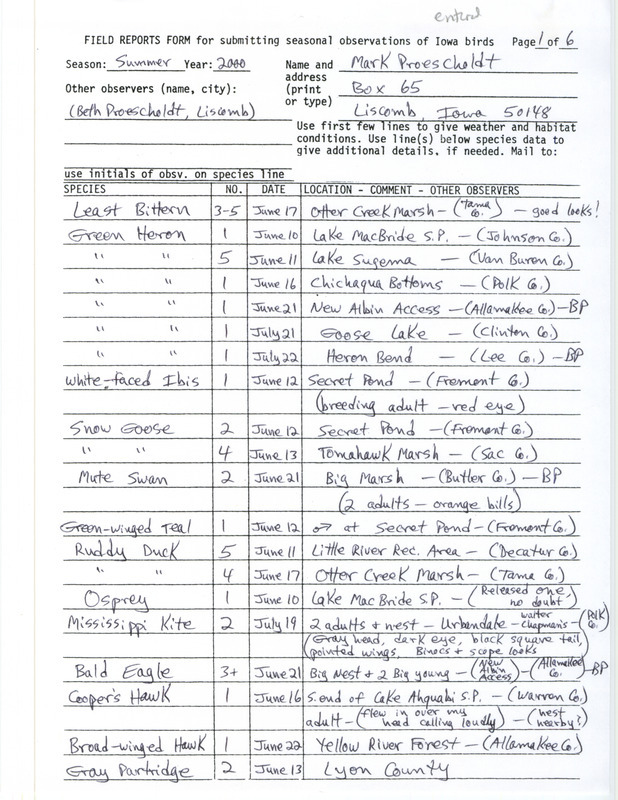 entered
FIELD REPORTS FORM for submitting seasonal observations of Iowa birds Page 1 of 6
Season: Summer Year: 2000 Name and address (print or type) Mark Proescholdt
Box 65
Liscomb, Iowa 50148
Other observers (name, city):
(Beth Proescholdt, Liscomb)
Use first few lines to give weather and habitat
conditions. Use line(s) below species data to
give additional details, if needed. Mail to:
use initials of obsv. on species line
SPECIES NO. DATE LOCATION - COMMENT - OTHER OBSERVERS
Least Bittern 3-5 June 17 Otter Creek Marsh - (Tama Co.) - good looks!
Green Heron 1 June 10 Lake MacBride S.P. - (Johnson Co.)
" " 5 June 11 Lake Sugema - (Van Buren Co.)
" " 1 June 16 Chichaqua Bottoms - (Polk Co.)
" " 1 June 21 New Albin Access - (Allamakee Co.) - BP
" " 1 July 21 Goose Lake - (Clinton Co.)
" " 1 July 22 Heron Bend - (Lee Co.) - BP
White-faced Ibis 1 June 12 Secret Pond - (Fremont Co.)
(breeding adult - red eye)
Snow Goose 2 June 12 Secret Pond - (Fremont Co.)
" " 4 June 13 Tomahawk Marsh - (Sac Co.)
Mute Swan 2 June 21 Big Marsh - (Butler Co.) - BP
(2 adults - orange bills)
Green-winged Teal 1 June 12 ♂ at Secret Pond - (Fremont Co.)
Ruddy Duck 5 June 11 Little River Rec. Area - (Decatur Co.)
" " 4 June 17 Otter Creek Marsh - (Tama Co.)
Osprey 1 June 10 Lake MacBride S.P. - (Released one, no doubt)
Mississippi Kite 2 July 19 2 adults + nest - Urbandale - Walter Chapman's - (Polk Co.)
(Gray head, dark eye, black square tail,
pointed wings, Binocs + scope looks
Bald Eagle 3+ June 21 Big Nest + 2 Big young - (New Albin Access) - (Allamakee Co.) - BP
Cooper's Hawk 1 June 16 S. end of Lake Ahquabi S.P. - (Warren Co.)
adult - (flew in over my head calling loudly) - (nest nearby?)
Broad-winged Hawk 1 June 22 Yellow River Forest - (Allamakee Co.)
Gray Partridge 2 June 13 Lyon County